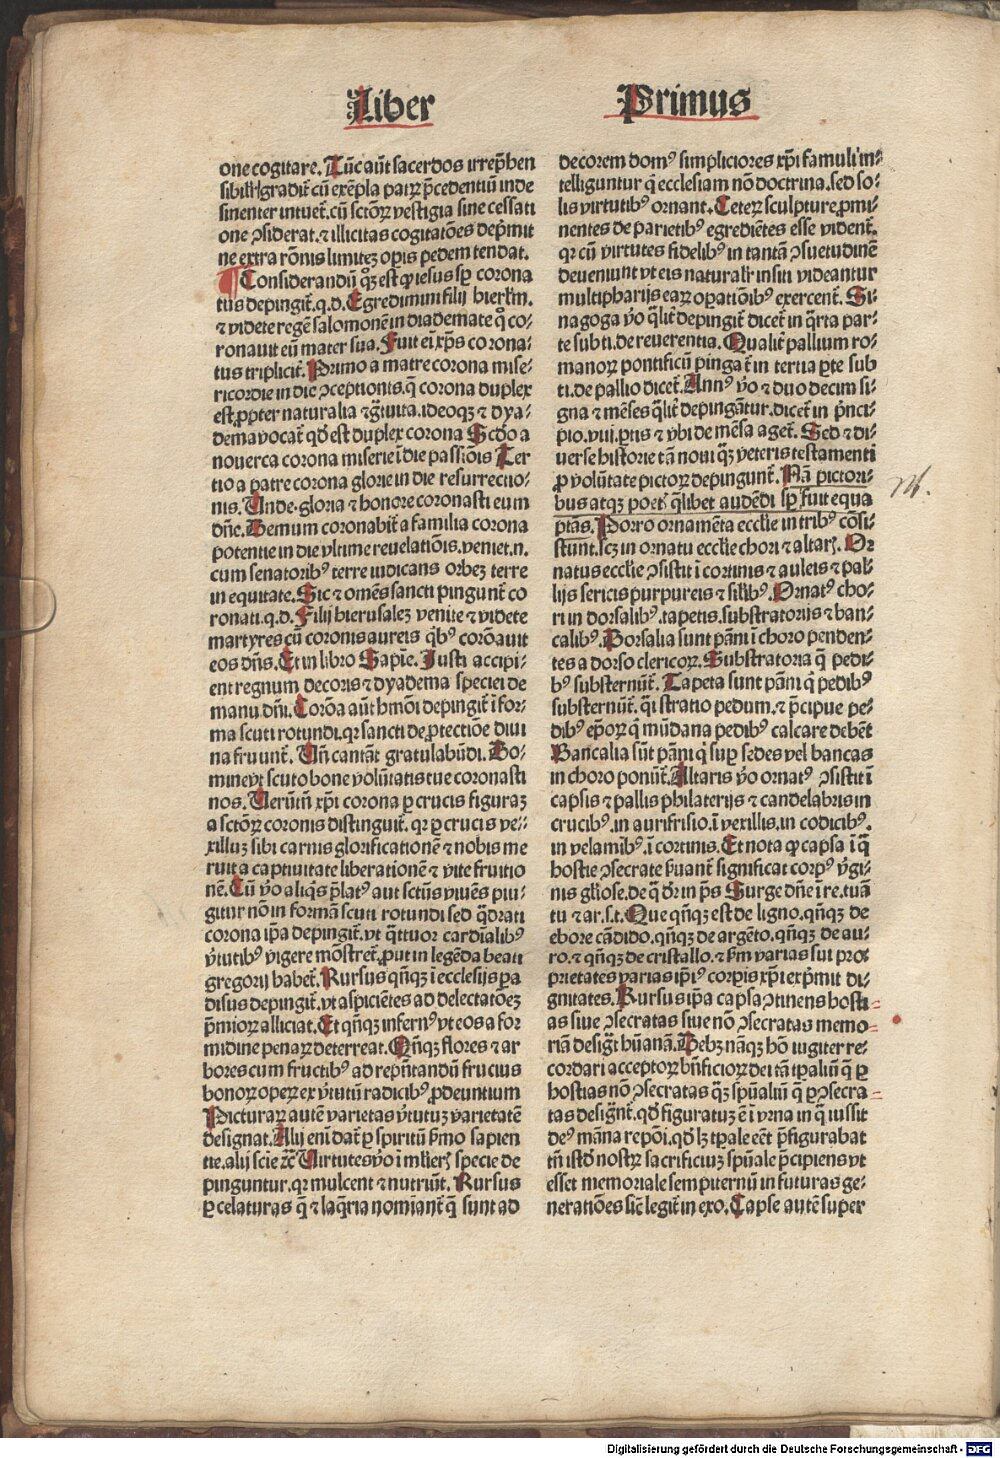 Liber Primus
one cogitare. Tūc aūt sacerdos irrep̄hen
sibilit̄ gradit̄ cū exēpla patꝝ p̄cedentiū inde
sinenter intuet̄. cū sctōꝝ vestigia sine cessati
one ↄsiderat. ⁊ illicitas cogitatōes dep̄mit
ne extra rōnis limitez opis pedem tendat.
¶ Considerandū qͦꝫ est ꝙ iesus sp̄ corona
tus depingit̄. q.d. Egredimini filij hierl̄m.
⁊ videte regē salomonē in diademate qͦ co-
ronauit eū mater sua. Fuit ei xp̄s corona-
tus triplicit̄. Primo a matre corona mise-
ricordie in die ↄceptionis. q̄ corona duplex
est ꝓpter naturalia ⁊ gͣtuita. ideoqꝫ ⁊ dya-
dema vocat̄ qd̄ est duplex corona Scd̄o a
nouerca corona miserie ī die passiōis Ter
tio a patre corona glorie in die resurrectio-
nis. Unde. gloria ⁊ honore coronasti eum
dn̄e. Demum coronabit̄ a familia corona
potentie in die vltime reuelatiōis. veniet .n.
cum senatoribꝰ terre iudicans orbeꝫ terre
in equitate. Sic ⁊ om̄es sancti pingunt̄ co
ronati. q.d. Filij hierusaleꝫ venite ⁊ videte
martyres cū coronis aureis qͥbꝰ corōauit
eos dn̄s. Et in libro Sapīe. Justi accipi-
ent regnum decoris ⁊ dyadema speciei de
manu dn̄i. Corōa aūt hmōi depingit̄ ī for-
ma scuti rotundi. qꝛ sancti dei ꝓtectiōe diui
na fruunt̄. Un̄ cantāt gratulabūdi. Do-
mine vt scuto bone volūtatis tue coronasti
nos. Verūtn̄ xp̄i corona ꝑ crucis figuraꝫ
a sctōꝝ coronis distinguit̄. qꝛ ꝑ crucis ve-
xilluꝫ sibi carnis glorificationē ⁊ nobis me
ruit a captiuitate liberationē ⁊ vite fruitio
nē. Cū ꝟo aliqͥs p̄latꝰ aut sctūs viuēs pin-
gitur nō in formā scuti rotundi sed qͣdrati
corona ip̄a depingit̄. vt qͣttuor cardīalibꝰ
ꝟtutibꝰ vigere mōstret̄. ꝓut in legēda beati
gregorij habet̄. Rursus qn̄qꝫ ī ecclesijs pa
disus depingit̄. vt aspiciētes ad delectatōeꝫ
p̄mioꝝ alliciat. Et qn̄qꝫ infernꝰ vt eos a for
midine penaꝝ deterreat. Qn̄qꝫ flores ⁊ ar
bores cum fructibꝰ ad rep̄ntandū fructus
bonoꝝ opeꝝ ex ꝟtutū radicibꝰ ꝓdeuntium
Picturaꝝ autē varietas ꝟtutuꝫ varietatē
designat. Alij enī dat̄ ꝑ spiritū s̄mo sapien
tie. alij scīe ⁊c̄ Uirtutes ꝟo ī mlieꝝ specie de
pinguntur. qꝛ mulcent ⁊ nutriūt. Rursus
ꝑ celaturas q̄ ⁊ laqͣria nomiant̄ q̄ sunt ad
decorem domꝰ simpliciores xp̄i famuli in-
telliguntur qͥ ecclesiam nō doctrina. sed so-
lis virtutibꝰ ornant. Ceteꝝ sculpture ꝓmi-
nentes de parietibꝰ egrediētes esse vident̄.
qꝛ cū virtutes fidelibꝰ in tantā ↄsuetudinē
deueniunt vt eis naturalr̄ insiti videantur
multipharijs eaꝝ opatiōibꝰ exercent̄. Si-
nagoga ꝟo qͣlit̄ depingit̄ dicet̄ in qͣrta par-
te sub ti. de reuerentia. Qualit̄ pallium ro-
manoꝝ pontificū pingat̄ in tertia ꝑte sub
ti. de pallio dicet̄. Annꝰ ꝟo ⁊ duodecim si-
gna ⁊ mēses qͣlit̄ depingātur. dicet̄ in p̄nci-
pio .viij. ꝑtis ⁊ vbi de mēsa aget̄. Sed ⁊ di-
uerse historie tā noui qͣꝫ veteris testamenti
ꝓ volūtate pictoꝝ depingunt̄. Nā pictori-
bus atqꝫ poet̄ qͥlibet audēdi sp̄ fuit equa
ptās. Porro ornamēta ecclīe in tribꝰ cōsi-
stunt. scꝫ in ornatu ecclīe chori ⁊ altaꝝ. Or
natus ecclīe ↄsistit ī cortinis ⁊ auleis ⁊ pal-
lijs sericis purpureis ⁊ sīlibꝰ. Ornatꝰ cho-
ri in dorsalibꝰ. tapetis. substratorijs ⁊ ban-
calibꝰ. Dorsalia sunt pāni ī choro penden-
tes a dorso clericoꝝ. Substratoria q̄ pedi-
bꝰ substernūt̄. Tapeta sunt pāni qͥ pedibꝰ
substernūt̄. qͥ stratio pedum. ⁊ p̄cipue pe-
dibꝰ ep̄oꝝ qͥ mūdana pedibꝰ calcare debēt
Bancalia sūt pāni qͥ sup sedes vel bancas
in choro ponūt̄. Altaris ꝟo ornatꝰ ↄsistit ī
capsis ⁊ pallis philaterijs ⁊ candelabris in
crucibꝰ. in aurifrisio. ī vexillis. in codicibꝰ.
in velamībꝰ. ī cortinis. Et nota ꝙ capsa ī q̄
hostie ↄsecrate ẜuant̄ significat corpꝰ ꝟgi-
nis gl̄iose. de q̄ dr̄ in ps̄ Surge dn̄e ī re. tuā
tu ⁊ ar. s.t. Que qn̄qꝫ est de ligno. qn̄qꝫ de
ebore cādido. qn̄qꝫ de argēto. qn̄qꝫ de au-
ro. ⁊ qn̄qꝫ de cristallo. ⁊ ẜm varias sui pro-
prietates varias ip̄iꝰ corpis xp̄i exp̄mit di-
gnitates. Rursus ip̄a capsa ↄtinens hosti-
as siue ↄsecratas siue nō ↄsecratas memo-
riā desigͣt hūanā. Debꝫ nāqꝫ hō iugiter re-
cordari acceptoꝝ bn̄ficioꝝ dei tā tꝑaliū q̄ ꝑ
hostias nō ↄsecratas qͣꝫ spūaliū q̄ ꝑ ↄsecra-
tas designt̄. qd̄ figuratuꝫ ē ī vrna in q̄ iussit
deꝰ māna repōi. qd̄ lꝫ tꝑale eēt p̄figurabat
tn̄ istd̄ nostꝝ sacrificiuꝫ spūale p̄cipiens vt
esset memoriale sempiternū in futuras ge-
neratiōes sic̄ legit̄ in exo. Capse autē super